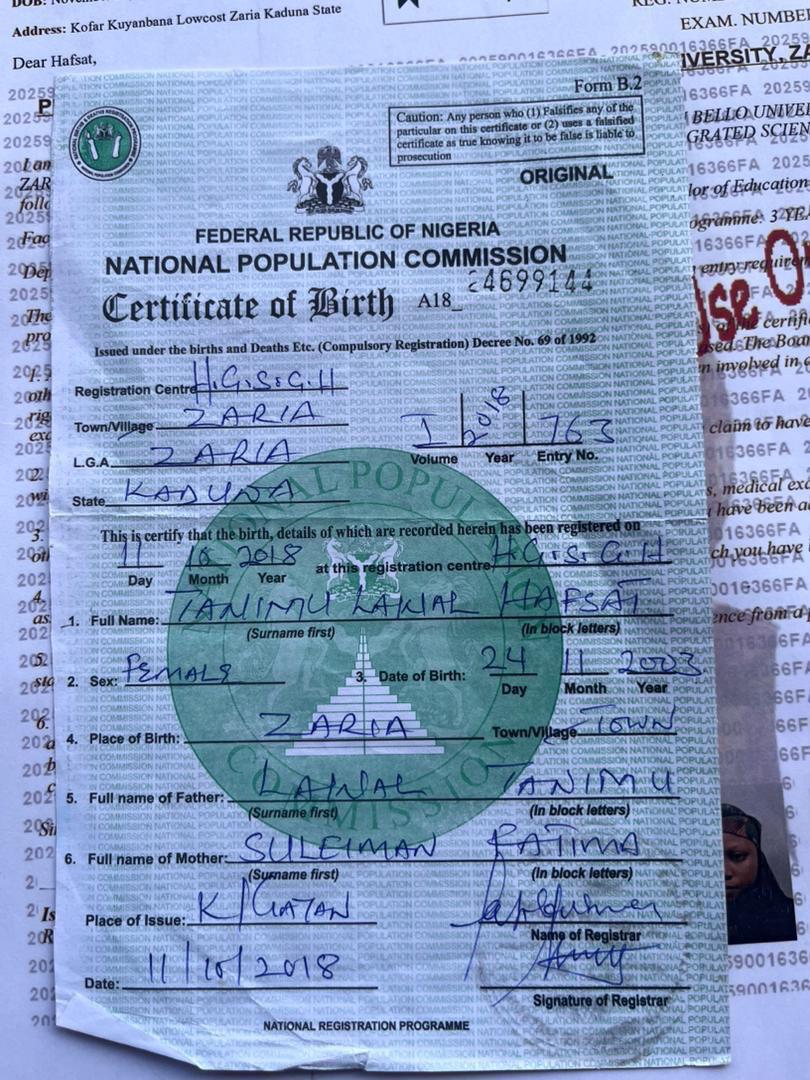 DOB:
Address: Kofar Kuyanbana Lowcost Zaria Kaduna State
EXAM. NUMBE
Dear Hafsat,
IVERSITY, ZA
BELLO UNIVE
GRATED SCIEN
lor of Education
ogramme: 3 YE
entry require
Use O
claim to have
s, medical exa
have been a
ch you have
ence from a
Form B.2
Caution: Any person who (1) Falsifies any of the
particular on this certificate or (2) uses a falsified
certificate as true knowing it to be false is liable to
prosecution
ORIGINAL
FEDERAL REPUBLIC OF NIGERIA
NATIONAL POPULATION COMMISSION
Certificate of Birth A18_ 24699144
Issued under the births and Deaths Etc. (Compulsory Registration) Decree No. 69 of 1992
Registration Centre H.G.S.G.H
Town/Village ZARIA
L.G.A ZARIA
State KADUNA
I 2018 763
Volume Year Entry No.
NATIONAL POPUL
COMMISSION
This is certify that the birth, details of which are recorded herein has been registered on
11 10 2018 at this registration centre H.G.S.G.H
Day Month Year
1. Full Name: TANIMU LAWAL HAFSAT
(Surname first) (In block letters)
2. Sex: FEMALE 3. Date of Birth: 24 11 2003
Day Month Year
4. Place of Birth: ZARIA Town/Village TOWN
5. Full name of Father: LAWAL TANIMU
(Surname first) (In block letters)
6. Full name of Mother: SULEIMAN FATIMA
(Surname first) (In block letters)
Place of Issue: K/GAYAN
Name of Registrar
Date: 11/10/2018
Signature of Registrar
NATIONAL REGISTRATION PROGRAMME